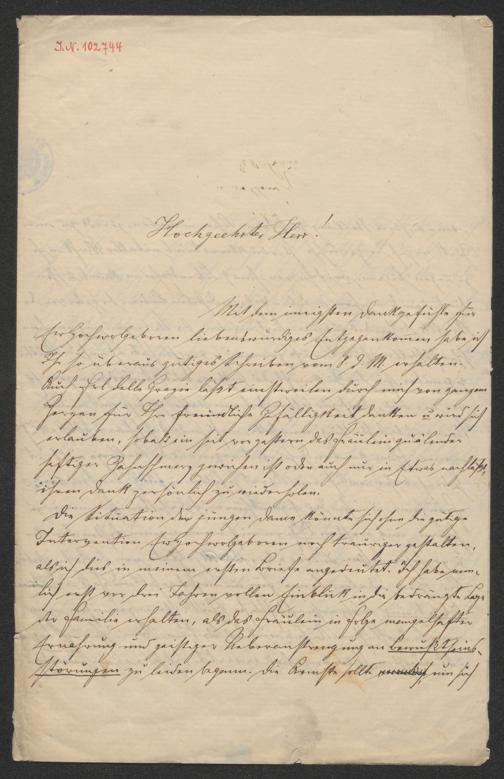 I.N. 102744
Hochgeehrter Herr!
Mit dem innigsten Dankgefühle für
Euer Hochwolgeboren liebenswürdiges Entgegenkommen habe ich
Ihr so überaus gütiges Schreiben vom 8. d. M. erhalten.
Auch Frl. delle Grazie läßt einstweilen durch mich von ganzem
Herzen für Ihre freundliche Gefälligkeit danken u. wird sich
erlauben, sobald ein seit vorgestern das Fräulein quälender
heftiger Zahnschmerz gewichen ist oder auch nur in Etwas nachläßt,
ihren Dank persönlich zu wiederholen.
Die Situation der jungen Dame könnte sich ohne die gütige
Intervention Euer Hochwolgeboren noch trauriger gestalten,
als ich dies in meinem ersten Briefe angedeutet. Ich habe nem-
lich erst vor drei Jahren vollen Einblick in die bedrängte Lage
der Familie erhalten, als das Fräulein in Folge mangelhafter
Ernährung und geistiger Ueberanstrengung an Bewußtseins-
störungen zu leiden begann. Die Ärmste sollte um sich